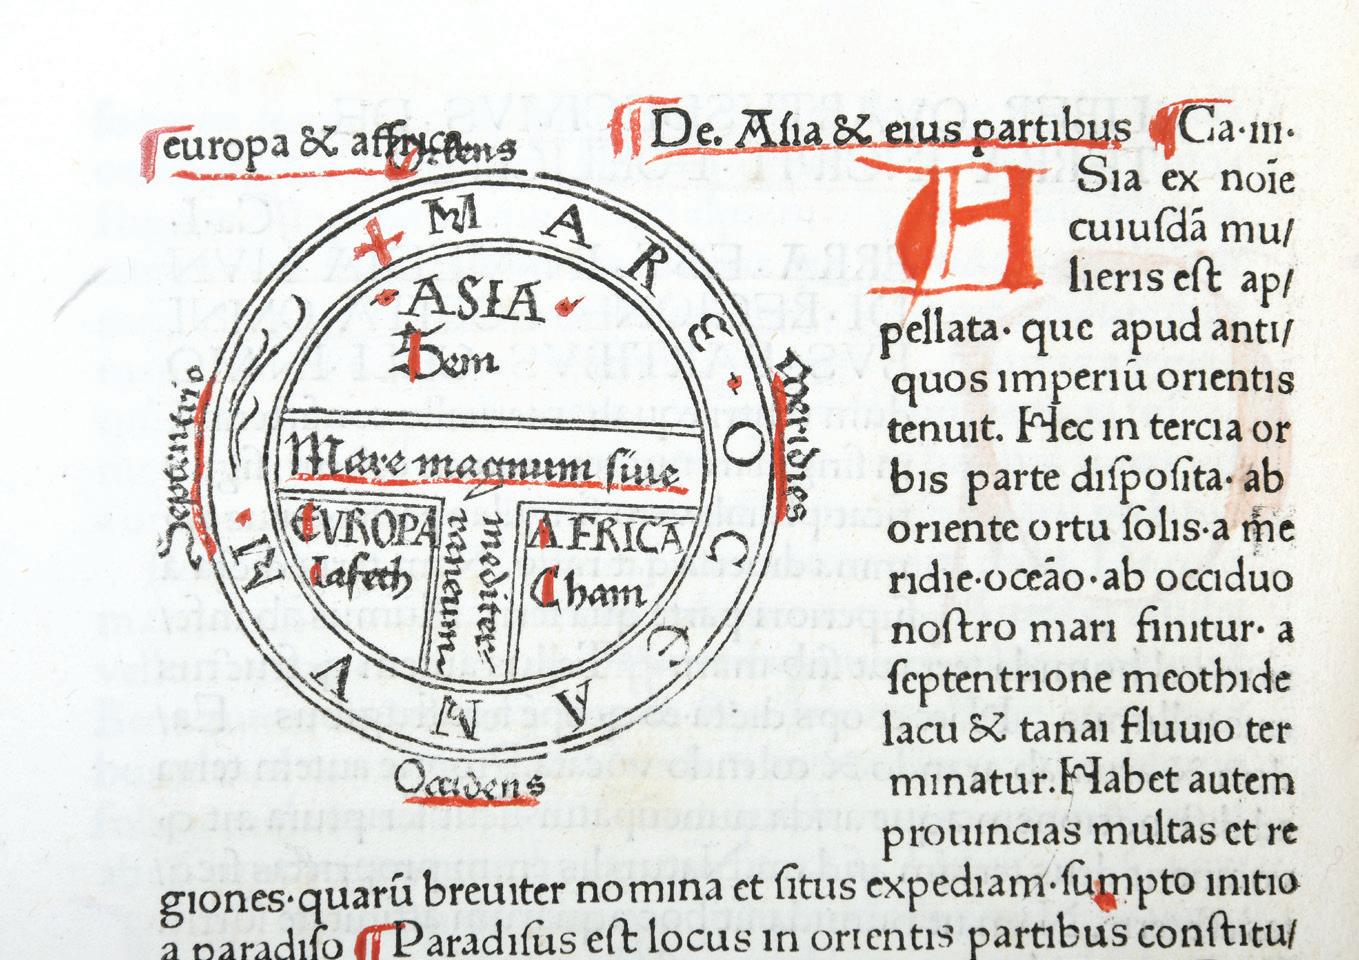 europa & affrica
De. Asia & eius partibus Ca·iii·
Oriens
MARE·OCCEANUM
ASIA
Sem
Septentrio
Meridies
Mare magnum siue
EVROPA
Iafeth
mediterraneum
AFRICA
Cham
Occidens
ASia ex noīe
cuiusdā mu/
lieris est ap/
pellata· que apud anti/
quos imperiū orientis
tenuit. Hec in tercia or
bis parte disposita· ab
oriente ortu solis·a me
ridie·oceāo·ab occiduo
nostro mari finitur· a
septentrione meothide
lacu & tanai fluuio ter
minatur: Habet autem
prouincias multas et re
giones·quarū breuiter nomina et situs expediam·sumpto initio
a paradiso Paradisus est locus in orientis partibus constitu/